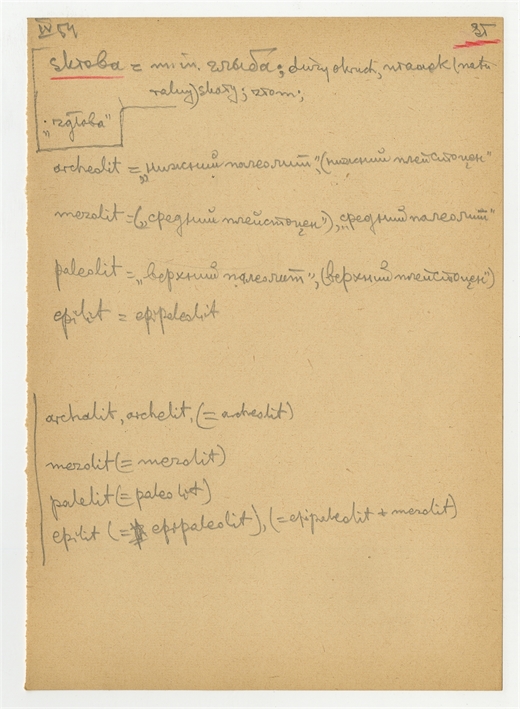 IV 54
skłoba = m.in. глыба; duży okruch, ułamek (natu-
ralny) skały; złom;
„zgłoba"
archeolit = „нижний палеолит", (нижний плейстоцен"
mezolit = („средний плейстоцен"), „средний палеолит"
paleolit = „верхний палеолит", (верхний плейстоцен")
epilit = epipaleolit
archalit, archelit, (= archeolit)
mezolit (= mezolit)
palelit (= paleolit)
epilit (= epipaleolit), (= epipaleolit + mezolit)